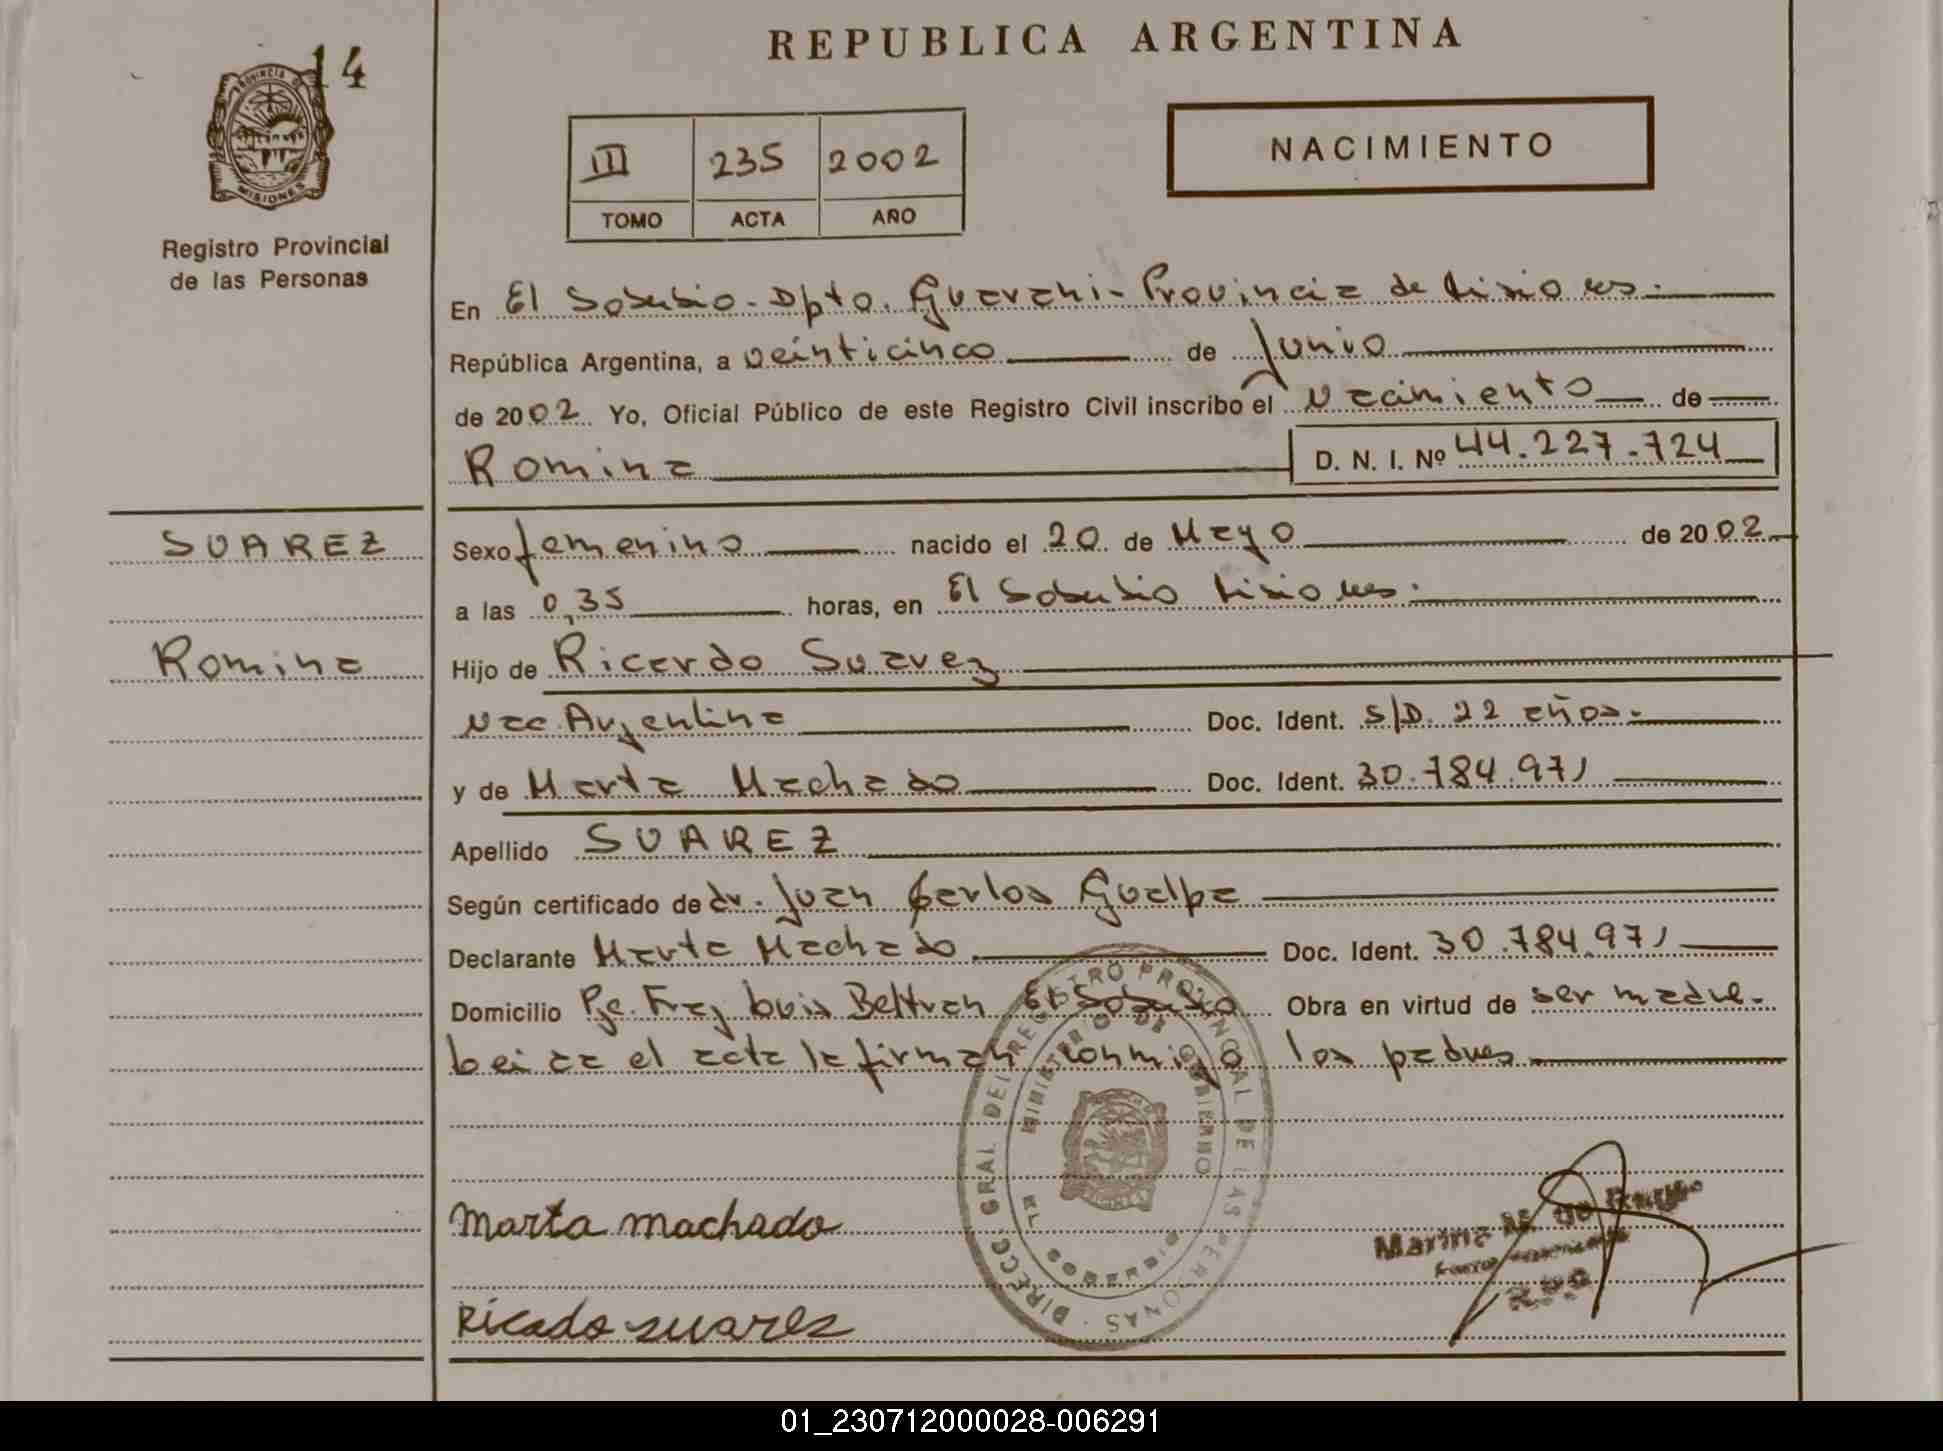 14
PROVINCIA DE
MISIONES
Registro Provincial
de las Personas
REPUBLICA ARGENTINA
III 235 2002
TOMO ACTA AÑO
NACIMIENTO
En El Soberbio - Dpto. Guarani - Provincia de Misiones.
República Argentina, a veinticinco de Junio
de 2002 Yo, Oficial Público de este Registro Civil inscribo el Nacimiento de
Romina D. N. I. Nº 44.227.724
SUAREZ
Romina
Sexo femenino nacido el 20 de Mayo de 2002
a las 0,35 horas, en El Soberbio Misiones.
Hijo de Ricardo Suarez
Nac. Argentina Doc. Ident. S/D. 22 años.
y de Marta Machado Doc. Ident. 30.784.971
Apellido SUAREZ
Según certificado de dr. Juan Carlos Gualpa
Declarante Marta Machado Doc. Ident. 30.784.971
Domicilio Pje. Fray Luis Beltran El Soberbio Obra en virtud de ser madre.
Leida el acta la firman conmigo los padres
DIRECC. GRAL. DEL REGISTRO PROVINCIAL DE LAS PERSONAS
MINISTERIO DE GOBIERNO
EL SOBERBIO
MISIONES
Marta machado
Ricado suarez
Marina
01_230712000028-006291